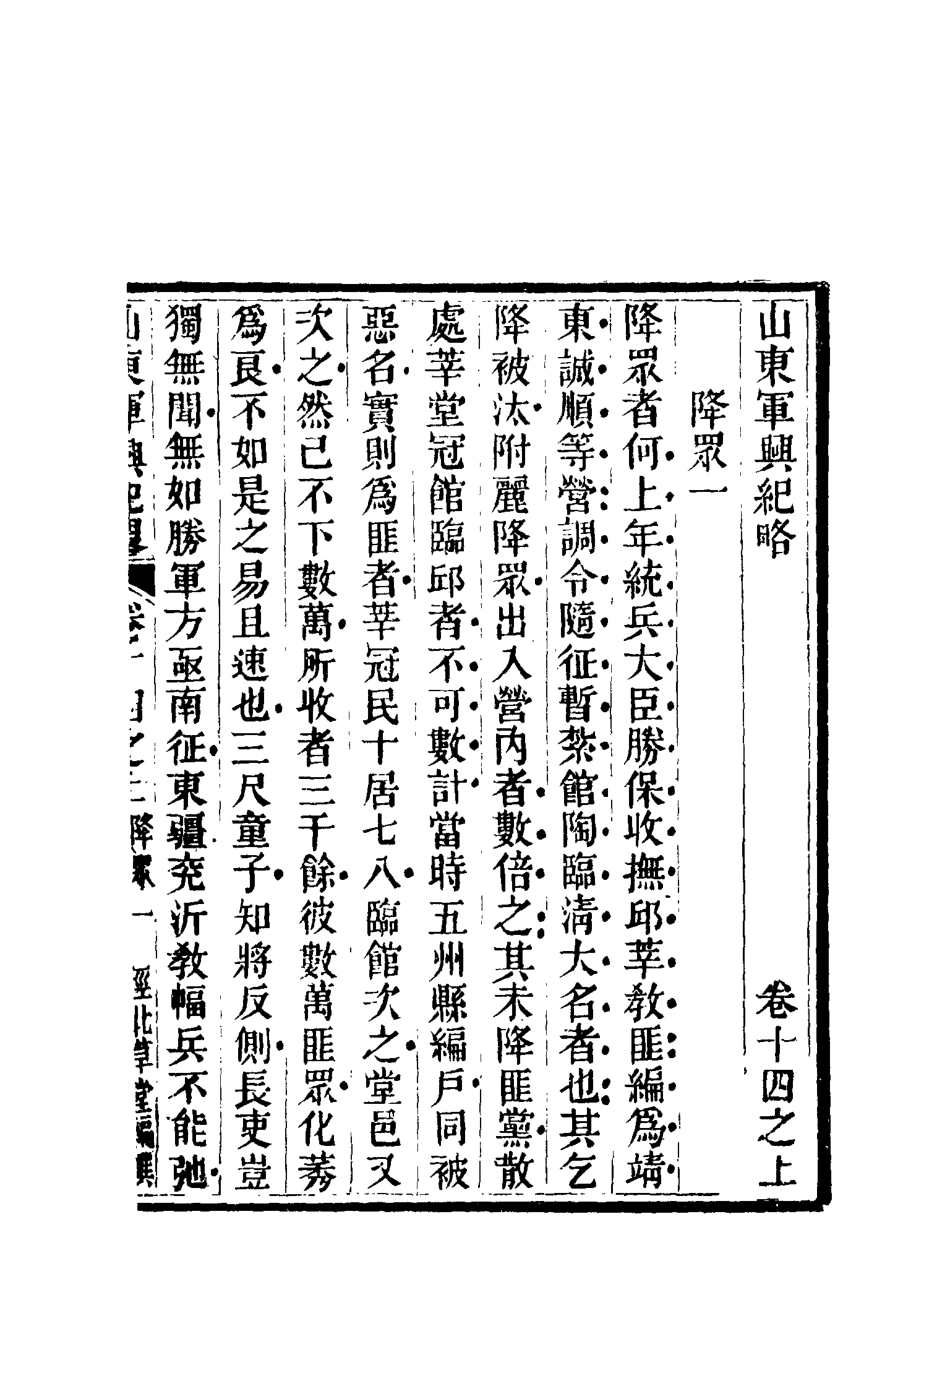 山東軍興紀略 卷十四之上
降眾一
降眾者何上年統兵大臣勝保收撫邱莘教匪編為靖
東誠順等營調令隨征暫紮館陶臨清大名者也其乞
降被汰附麗降眾出入營內者數倍之其未降匪黨散
處莘堂冠館臨邱者不可數計當時五州縣編戶同被
惡名實則為匪者莘冠民十居七八臨館次之堂邑又
次之然已不下數萬所收者三千餘彼數萬匪眾化莠
為良不如是之易且速也三尺童子知將反側長吏豈
獨無聞無如勝軍方亟南征東疆兗沂教幅兵不能弛
山東軍興紀略 卷十四之上 降眾一 堂編撰